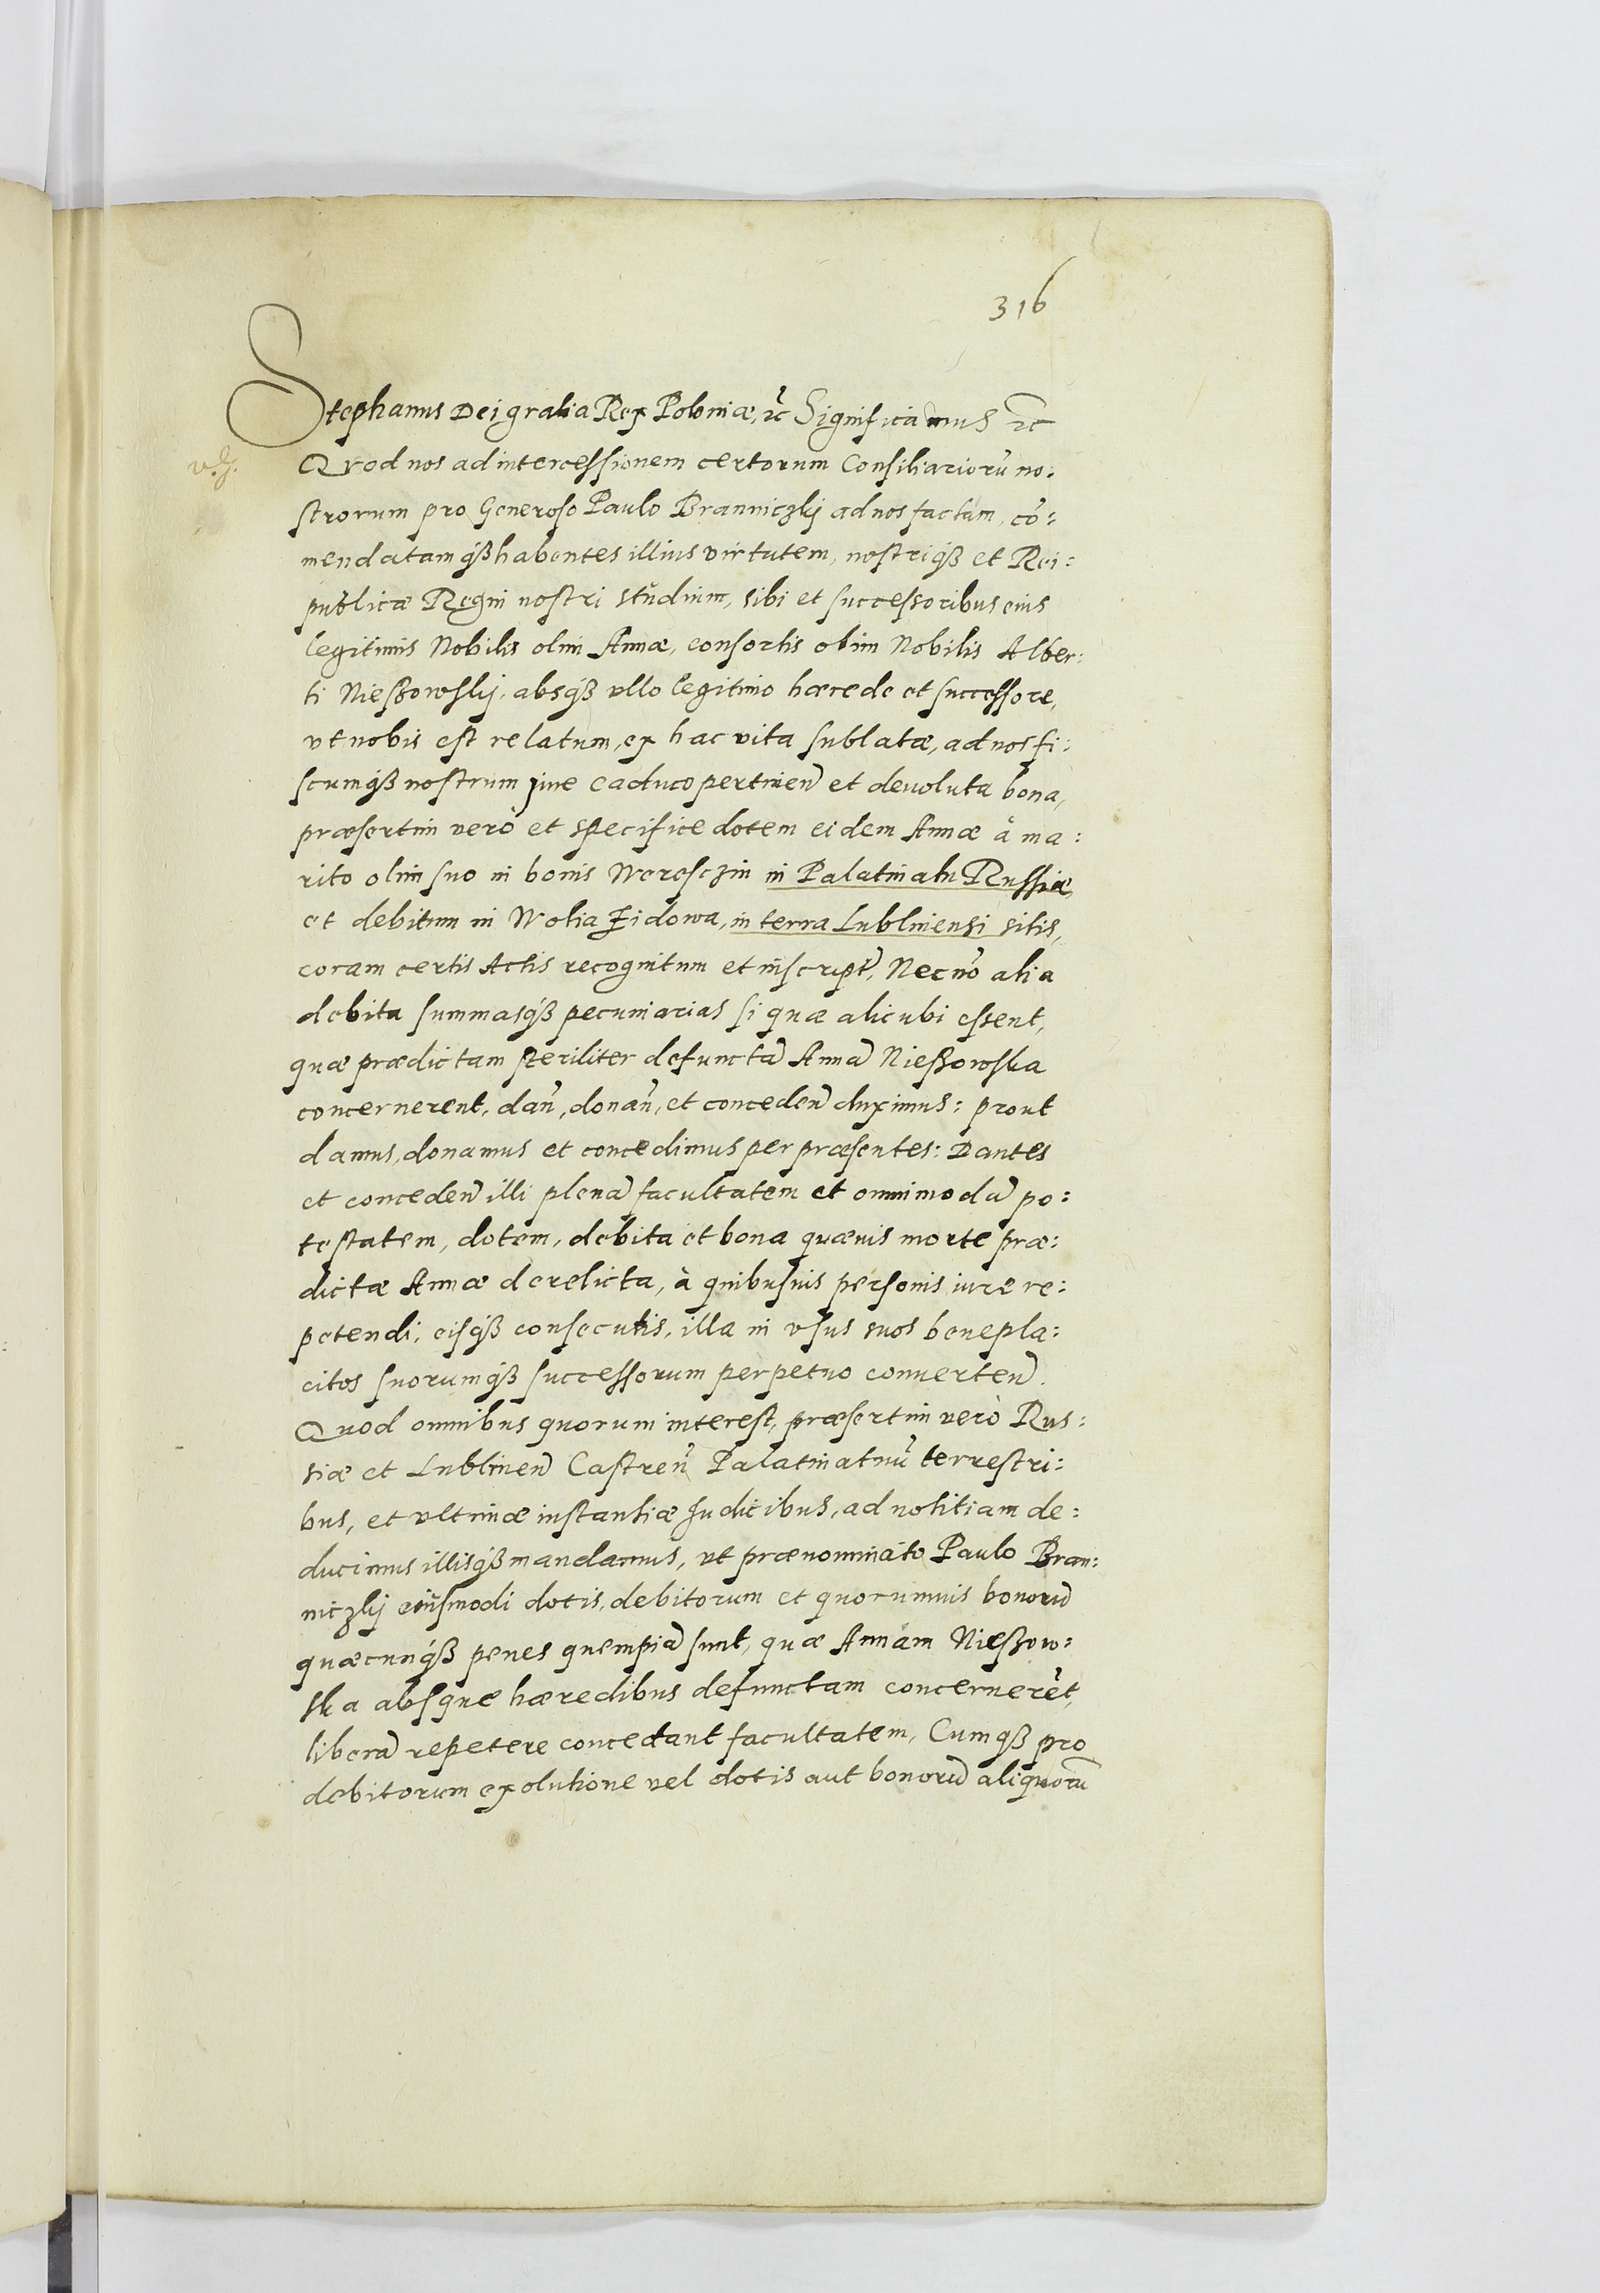 316
Stephanus Dei gratia Rex Poloniæ, ꝛc̃ Significamus ꝛc
Quod nos ad intercessionem certorum Consiliariorũ no:
strorum pro Generoso Paulo Branniczkij ad nos factam, cõ:
mendatamq́ꝫ habentes illius virtutem, nostriq́ꝫ et Rei:
publicæ Regni nostri studium, sibi et successoribus eius
legitimis Nobilis olim Annæ, consortis olim Nobilis Alber:
ti Nieszowskij, absq́ꝫ vllo legitimo hærede et successore,
vt nobis est relatum, ex hac vita sublatæ, ad nos fi:
scumq́ꝫ nostrum jure caduco pertineñ et deuoluta bona,
præsertim verò et specifice dotem eidem Annæ à ma:
rito olim suo in bonis Weresczin in Palatinatu Russiæ,
et debitum in Wolia Zidowa, in terra Lubliniensi sitis,
coram certis Actis recognitum et inscript̃, Necnõ alia
debita summasq́ꝫ pecuniarias si quæ alicubi essent,
quæ prædictam steriliter defunctã Annã Nieszowska
concernerent, dañ, donañ, et concedeñ duximus: prout
damus, donamus et concedimus per præsentes: Dantes
et concedeñ illi plenã facultatem et omnimodã po:
testatem, dotem, debita et bona quævis morte præ:
dictæ Annæ derelicta, à quibusuis personis iure re:
petendi, eisq́ꝫ consecutis, illa in vsus suos benepla:
citos suorumq́ꝫ successorum perpetuo conuerteñ.
Quod omnibus quorum interest, præsertim verò Rus:
siæ et Lublineñ Castreñ Palatinatuũ terrestri:
bus, et vltimæ instantiæ Judicibus, ad notitiam de:
ducimus illisq́ꝫ mandamus, vt prænominato Paulo Bran:
niczkij eiusmodi dotis, debitorum et quorumuis bonorũ
quæcunq́ꝫ penes quempiã sunt, quæ Annam Nieszow:
ska absque hæredibus defunctam concernerẽt,
liberã repetere concedant facultatem, Cumq́ꝫ pro
debitorum exolutione vel dotis aut bonorũ aliquorũ